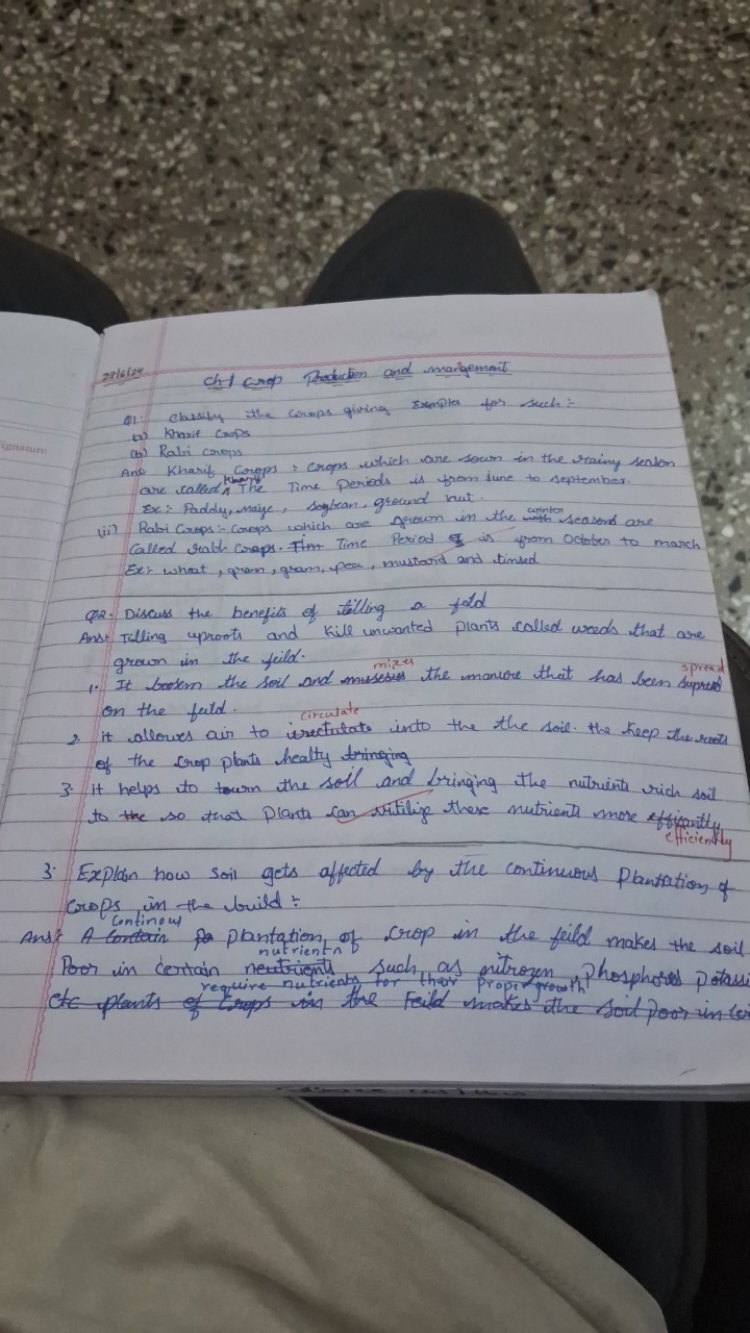 ignature
27/6/24
Ch-1 Crop Production and mangement
Q1. Classify the Corops giving Examples for such :-
(a) Kharif Crops
(b) Rabi crops
Ans Kharif Corops : crops which are sown in the rainy season
are called Kharif The Time Periods is from June to september.
Ex:- Paddy, maize, soybean, ground nut.
(ii) Rabi Crops :- crops which are grown in the winter seasons are
Called rabi Crops. Time Period is from October to march
Ex:- wheat, gram, gram, pea, mustard and linsed
Q2. Discuss the benefits of tilling a feld
Ans:- Tilling uproots and kill unwanted plants called weeds that are
grown in the feild.
mixes spread
1. It loosem the soil and the manure that has been supread
on the feild.
circulate
2. it allows air to into the the soil. the keep the roots
of the crop plants healty bringing
3. it helps to tourn the soil and bringing the nutrients rich soil
to the so that plants can utilize these nutrients more efficantly
efficiently
3. Explain how soil gets affected by the continuous plantation of
Crops in the build :-
Continous
Ans:- A Contain plantation of crop in the feild makes the soil
nutrients
Poor in certain neutrients such as nitrozen, phosphores potassi
require nutrients for their proper growth
etc plants of crops in the Feild makes the soil poor in